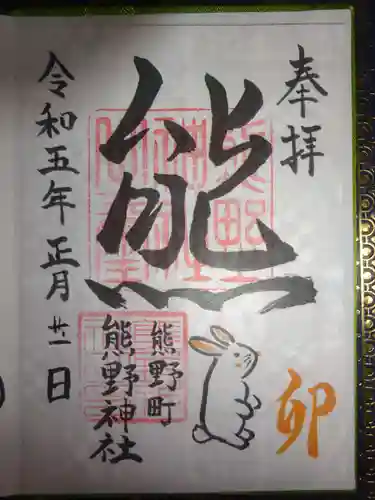 奉拝
熊
卯
熊野町
熊野神社
令和五年正月廿一日